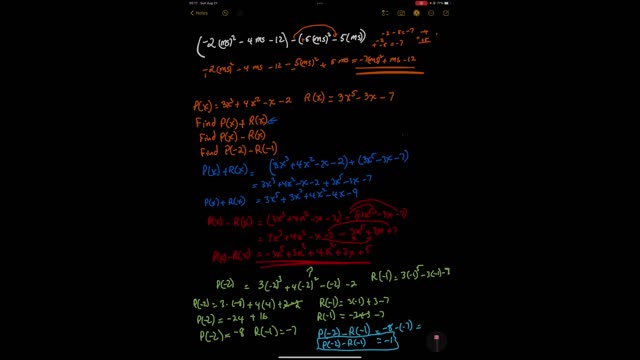 (-2(ms)² - 4ms - 12) - (-5(ms)² - 5(ms))
-2(ms)² - 4ms - 12 - -5(ms)² + 5ms = -7(ms)² + ms - 12
P(x) = 3x³ + 4x² - x - 2 R(x) = 3x⁵ - 3x - 7
Find P(x) + R(x)
Find P(x) - R(x)
Find P(-2) - R(-1)
P(x) + R(x) = (3x³ + 4x² - x - 2) + (3x⁵ - 3x - 7)
= 3x³ + 4x² - x - 2 + 3x⁵ - 3x - 7
P(x) + R(x) = 3x⁵ + 3x³ + 4x² - 4x - 9
P(x) - R(x) = (3x³ + 4x² - x - 2) - (3x⁵ - 3x - 7)
= 3x³ + 4x² - x - 2 - 3x⁵ + 3x + 7
P(x) - R(x) = -3x⁵ + 3x³ + 4x² + 2x + 5
?
P(-2) = 3(-2)³ + 4(-2)² - (-2) - 2 R(-1) = 3(-1)⁵ - 3(-1) - 7
P(-2) = 3·(-8) + 4(4) + 2 - 2 R(-1) = 3(-1) + 3 - 7
P(-2) = -24 + 16 R(-1) = -3 + 3 - 7
P(-2) = -8 R(-1) = -7
P(-2) - R(-1) = -8 - (-7) =
P(-2) - R(-1) = -1